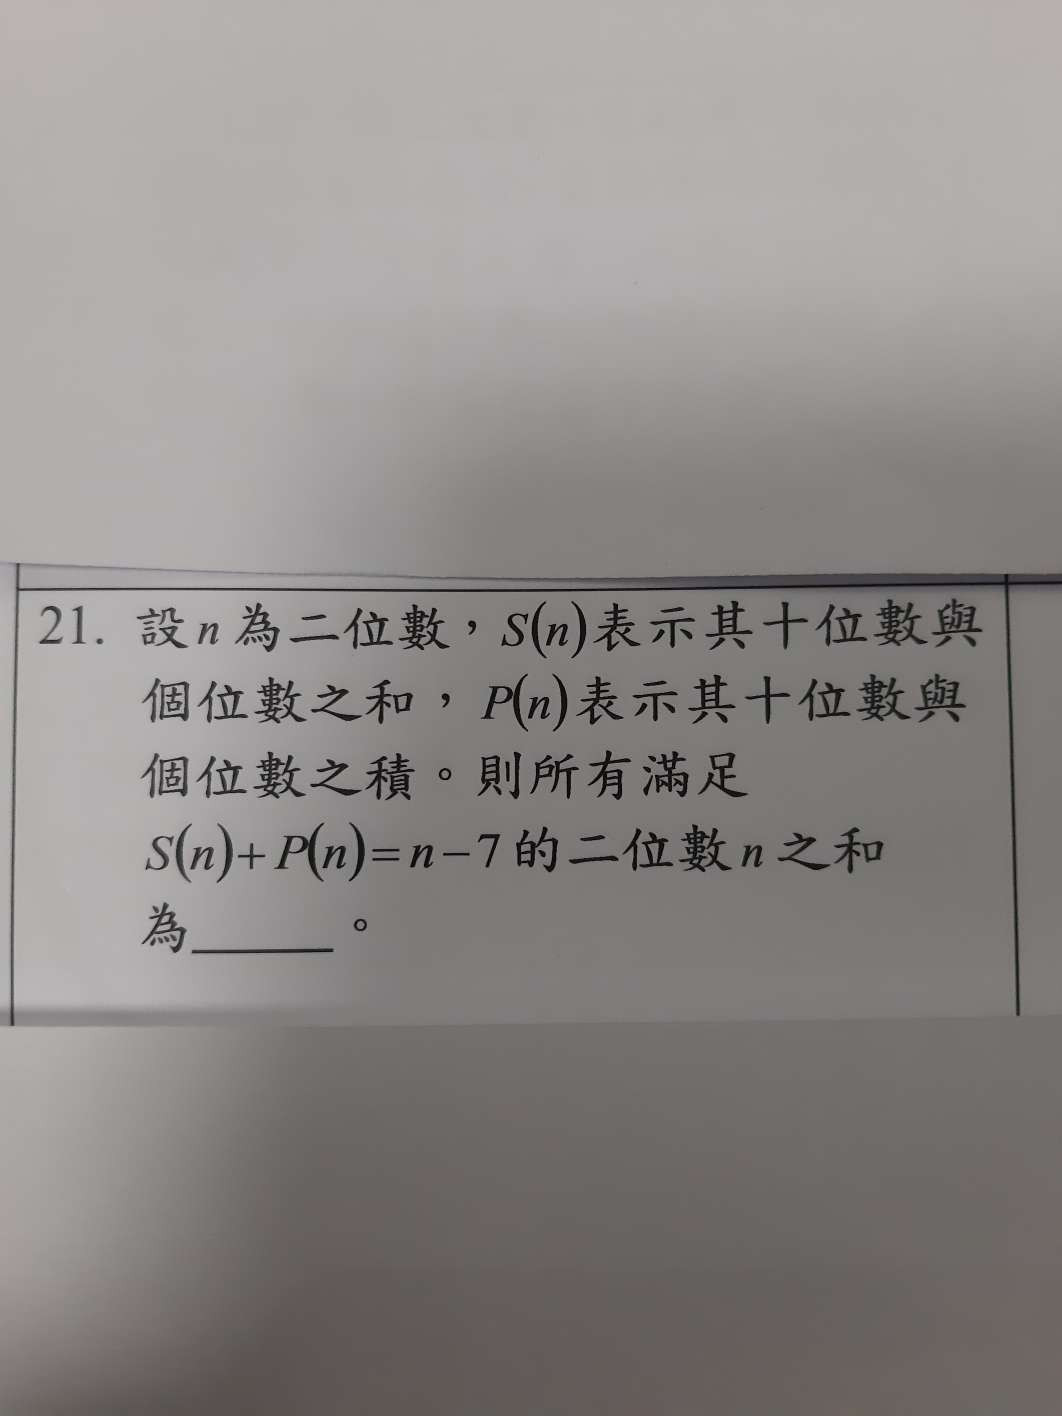 21. 設n為二位數，S(n)表示其十位數與
個位數之和，P(n)表示其十位數與
個位數之積。則所有滿足
S(n)+P(n)=n−7的二位數n之和
為______。